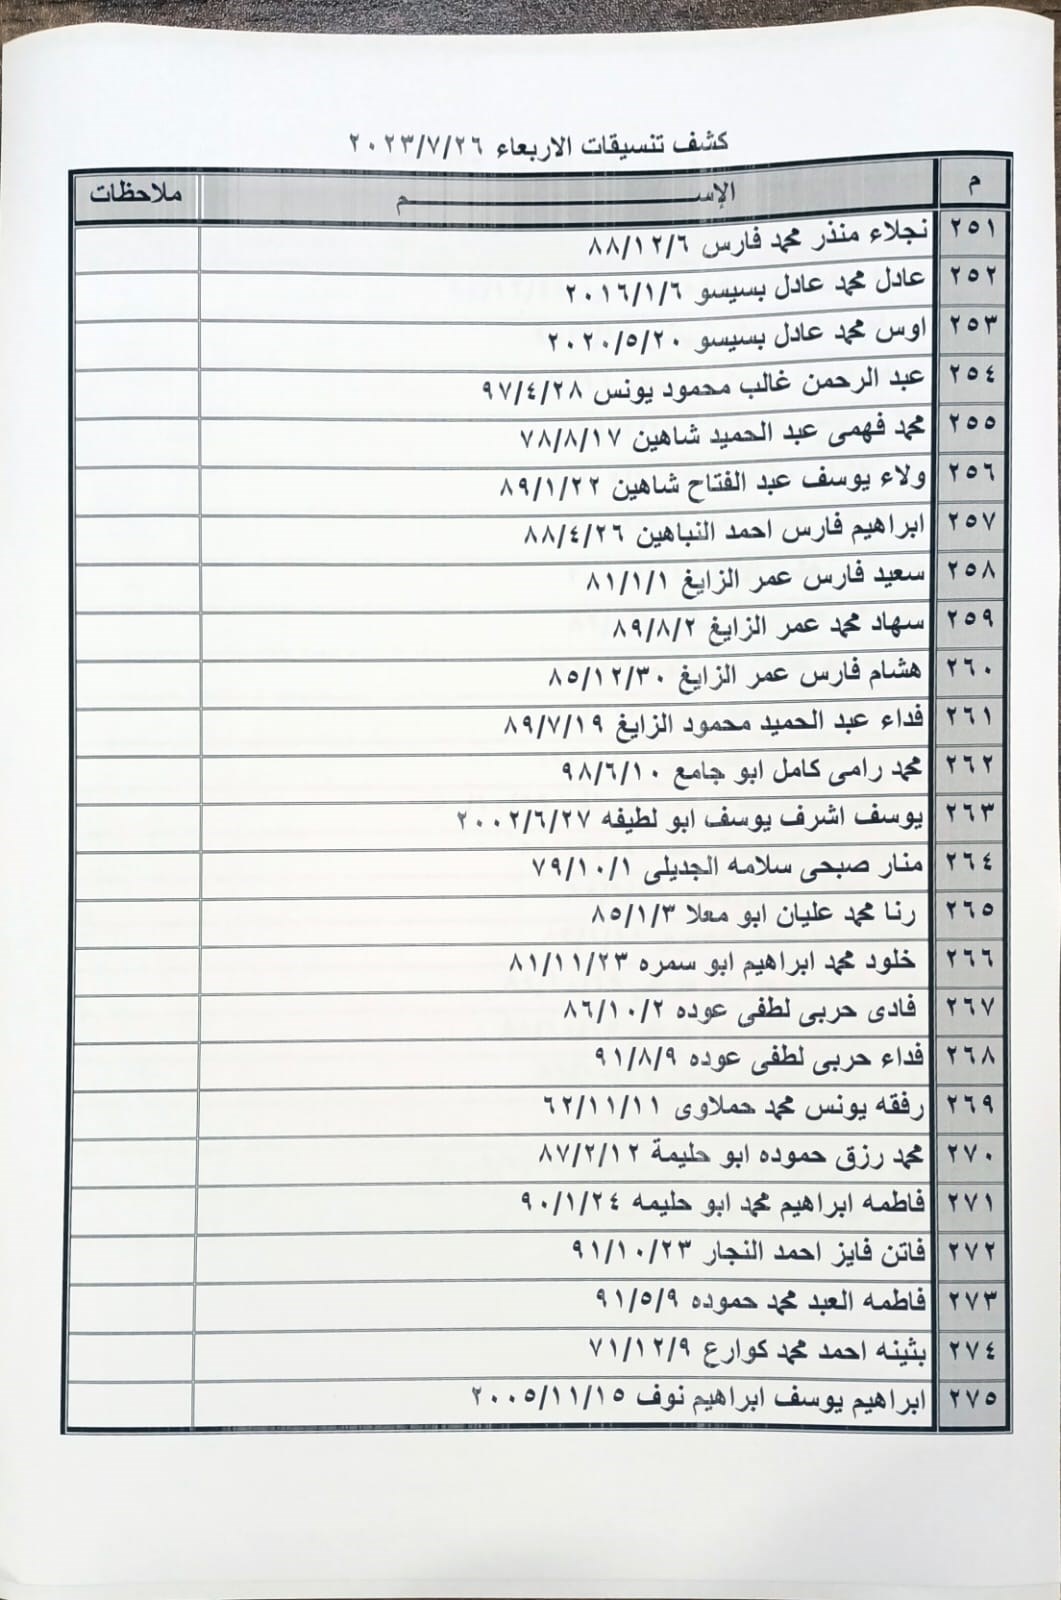 كشف تنسيقات الاربعاء ٢٠٢٣/٧/٢٦
م الإســـــــــــم ملاحظات
٢٥١ نجلاء منذر محمد فارس ٨٨/١٢/٦
٢٥٢ عادل محمد عادل بسيسو ٢٠١٦/١/٦
٢٥٣ اوس محمد عادل بسيسو ٢٠٢٠/٥/٢٠
٢٥٤ عبد الرحمن غالب محمود يونس ٩٧/٤/٢٨
٢٥٥ محمد فهمى عبد الحميد شاهين ٧٨/٨/١٧
٢٥٦ ولاء يوسف عبد الفتاح شاهين ٨٩/١/٢٢
٢٥٧ ابراهيم فارس احمد النباهين ٨٨/٤/٢٦
٢٥٨ سعيد فارس عمر الزايغ ٨١/١/١
٢٥٩ سهاد محمد عمر الزايغ ٨٩/٨/٢
٢٦٠ هشام فارس عمر الزايغ ٨٥/١٢/٣٠
٢٦١ فداء عبد الحميد محمود الزايغ ٨٩/٧/١٩
٢٦٢ محمد رامى كامل ابو جامع ٩٨/٦/١٠
٢٦٣ يوسف اشرف يوسف ابو لطيفه ٢٠٠٢/٦/٢٧
٢٦٤ منار صبحى سلامه الجديلى ٧٩/١٠/١
٢٦٥ رنا محمد عليان ابو معلا ٨٥/١/٣
٢٦٦ خلود محمد ابراهيم ابو سمره ٨١/١١/٢٣
٢٦٧ فادى حربى لطفى عوده ٨٦/١٠/٢
٢٦٨ فداء حربى لطفى عوده ٩١/٨/٩
٢٦٩ رفقه يونس محمد حملاوى ٦٢/١١/١١
٢٧٠ محمد رزق حموده ابو حليمة ٨٧/٢/١٢
٢٧١ فاطمه ابراهيم محمد ابو حليمه ٩٠/١/٢٤
٢٧٢ فاتن فايز احمد النجار ٩١/١٠/٢٣
٢٧٣ فاطمه العبد محمد حموده ٩١/٥/٩
٢٧٤ بثينه احمد محمد كوارع ٧١/١٢/٩
٢٧٥ ابراهيم يوسف ابراهيم نوف ٢٠٠٥/١١/١٥